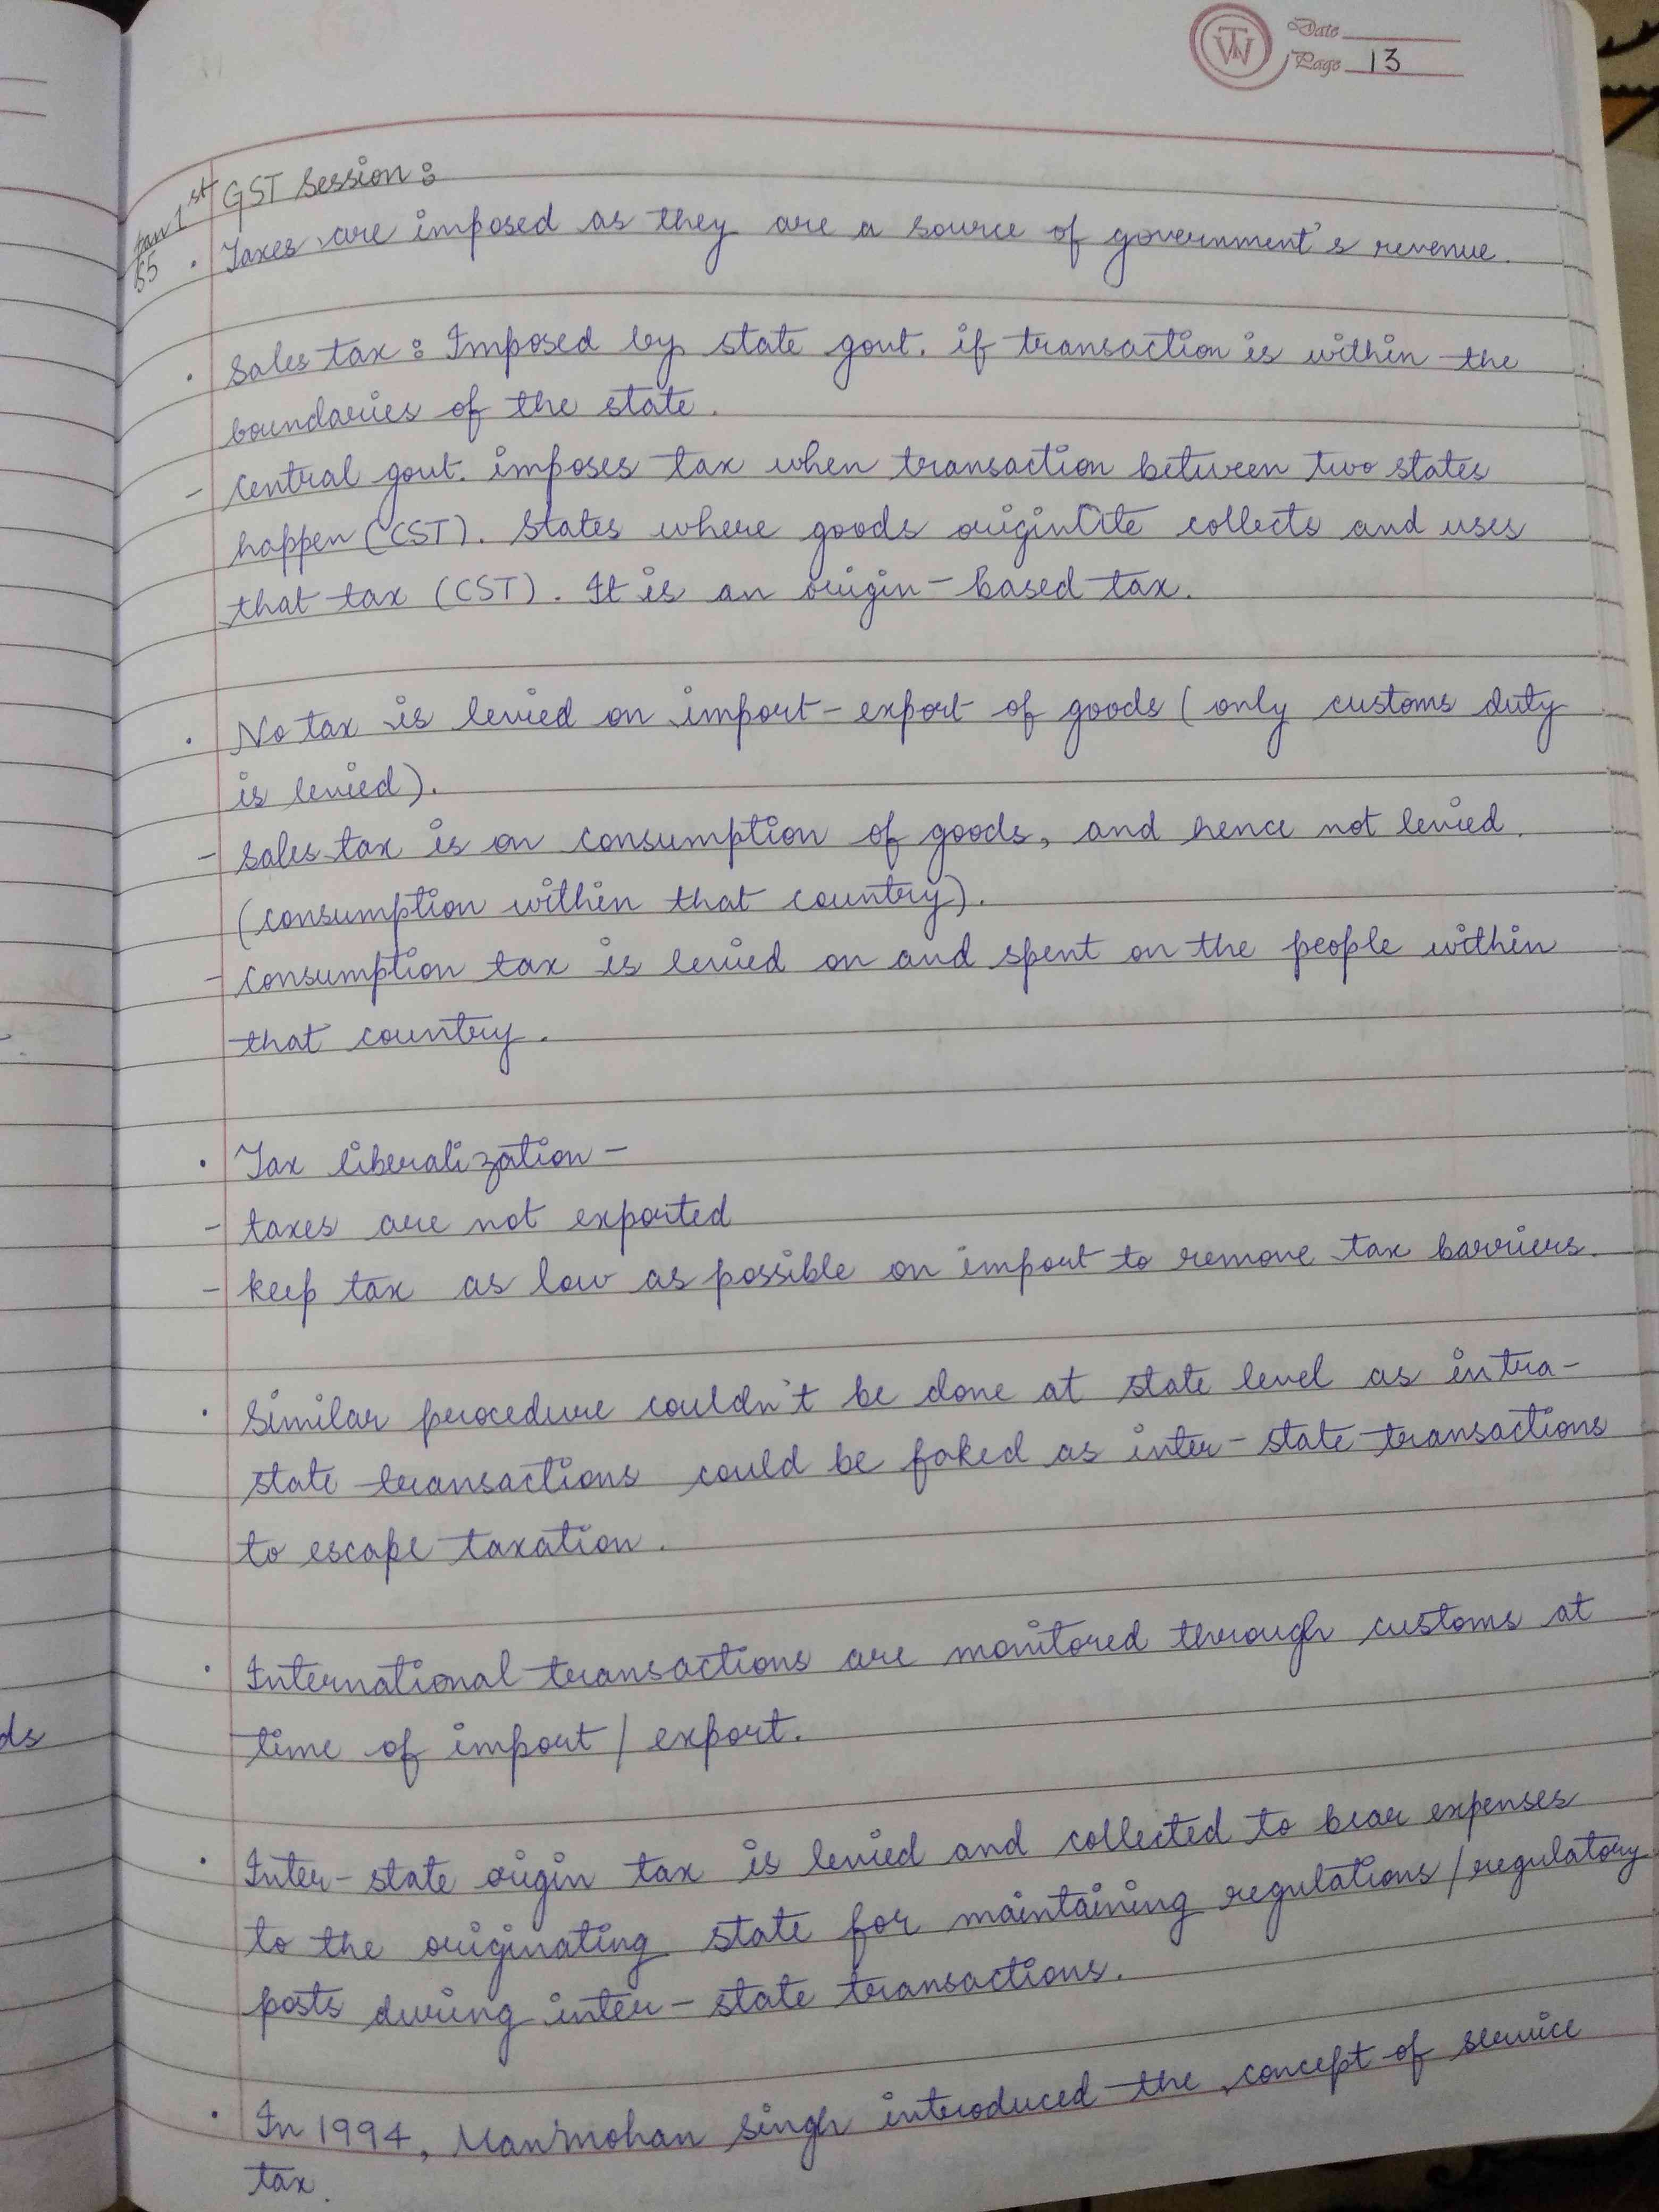 Date
Page 13
1st GST Session :
55 • Taxes are imposed as they are a source of government's revenue.
• Sales tax : Imposed by state govt. if transaction is within the
boundaries of the state.
- Central govt. imposes tax when transaction between two states
happen (CST). States where goods originate collects and uses
that tax (CST). It is an origin - based tax.
• No tax is levied on import - export of goods ( only customs duty
is levied).
- Sales tax is on consumption of goods, and hence not levied.
(consumption within that country).
- Consumption tax is levied on and spent on the people within
that country.
• Tax liberalization -
- taxes are not exported
- keep tax as low as possible on import to remove tax barriers.
• Similar procedure couldn't be done at state level as intra-
state transactions could be faked as inter - state transactions
to escape taxation.
• International transactions are monitored through customs at
time of import / export.
• Inter - state origin tax is levied and collected to bear expenses
to the originating state for maintaining regulations / regulatory
posts during inter - state transactions.
• In 1994, Manmohan Singh introduced the concept of service
tax.
ds